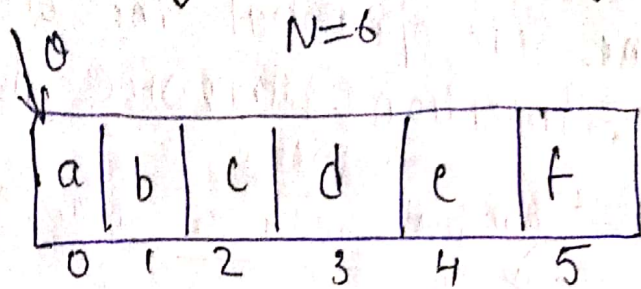 0 N=6
a b c d e f
0 1 2 3 4 5